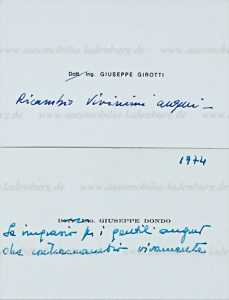 www.automobilia-ladenburg.de
Dott. Ing. GIUSEPPE GIROTTI
Ricambio Vivissimi auguri
www.automobilia-ladenburg.de
1974
www.automobilia-ladenburg.de
GIUSEPPE DONDO
La ringrazio per i gentili auguri
che contraccambio vivamente
www.automobilia-ladenburg.de